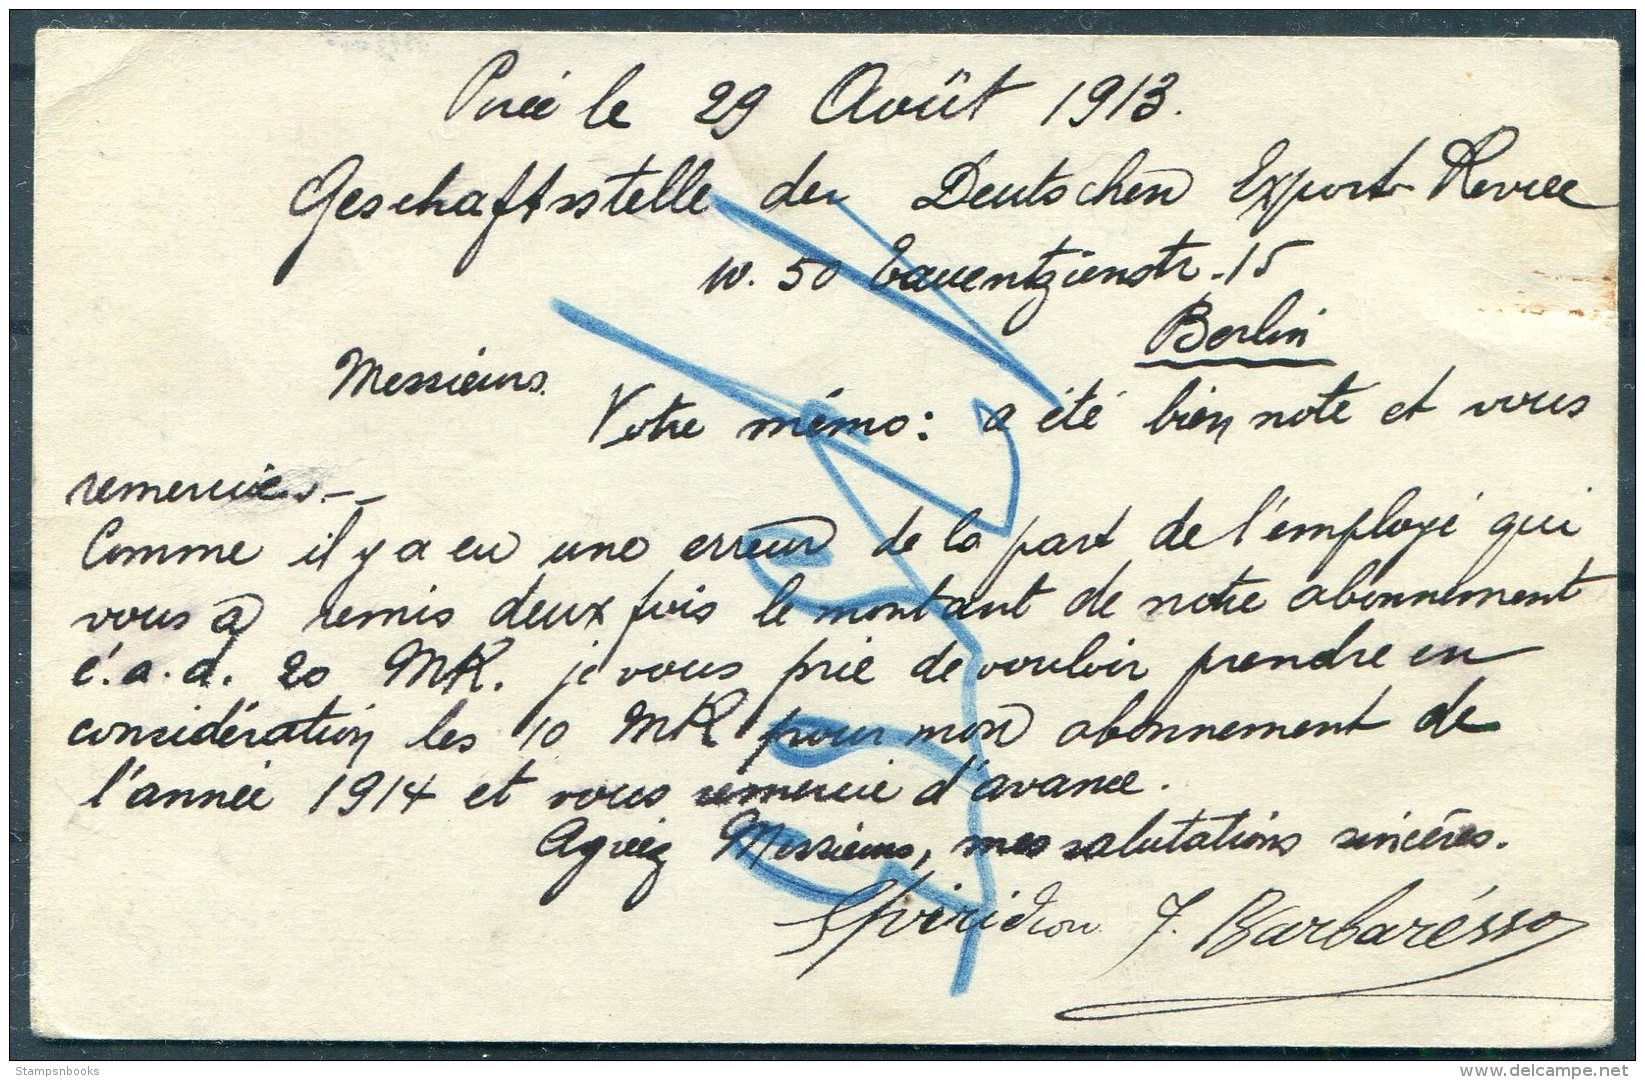 Pirée le 29 Août 1913.
Geschaftsstelle der Deutschen Export-Revue
W. 50 Tauentzienstr. 15
Berlin
Messieurs.
Votre mémo: a été bien note et vous
remercie.--
Comme il y a eu une erreur de la part de l'employé qui
vous a remis deux fois le montant de notre abonnement
c.a.d. 20 MK. je vous prie de vouloir prendre en
considération les 10 MK pour mon abonnement de
l'année 1914 et vous remercie d'avance.
Agréez Messieurs, mes salutations sincéres.
Spiridion J. Barbarésso
Stampsnbooks
www.delcampe.net